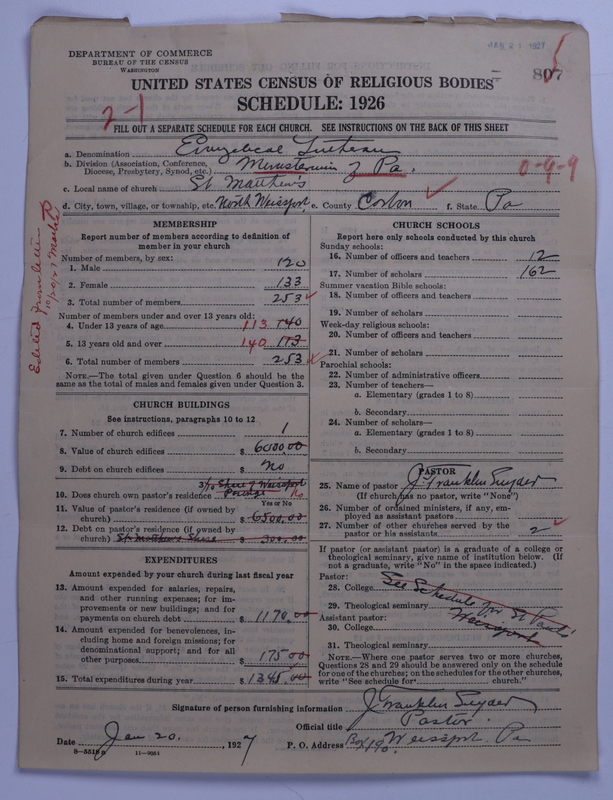 JAN 21 1927
DEPARTMENT OF COMMERCE
BUREAU OF THE CENSUS
WASHINGTON
807
UNITED STATES CENSUS OF RELIGIOUS BODIES
SCHEDULE: 1926
2-1
FILL OUT A SEPARATE SCHEDULE FOR EACH CHURCH. SEE INSTRUCTIONS ON THE BACK OF THIS SHEET
a. Denomination Evangelical Lutheran
b. Division (Association, Conference, Diocese, Presbytery, Synod, etc.) Ministerium of Pa. 0-9-9
c. Local name of church St Matthew's
d. City, town, village, or township, etc. North Weissport, e. County Carbon f. State Pa
MEMBERSHIP
Report number of members according to definition of
member in your church
Number of members, by sex:
1. Male 120
2. Female 133
3. Total number of members 253
Number of members under and over 13 years old:
4. Under 13 years of age 113 140
5. 13 years old and over 140 113
6. Total number of members 253
NOTE.—The total given under Question 6 should be
same as the total of males and females given under Question 3.
CHURCH BUILDINGS
See instructions, paragraphs 10 to 12
7. Number of church edifices 1
8. Value of church edifices $ 6000.00
9. Debt on church edifices $ No
3/10 Share of Weissport
10. Does church own pastor's residence Parsonage No
Yes or No
11. Value of pastor's residence (if owned by
church) $ 6500.00
12. Debt on pastor's residence (if owned by
church) St. Matthew's Share $ 300.00
EXPENDITURES
Amount expended by your church during last fiscal year
13. Amount expended for salaries, repairs,
and other running expenses; for im-
provements or new buildings; and for
payments on church debt $ 1170.00
14. Amount expended for benevolences, in-
cluding home and foreign missions; for
denominational support; and for all
other purposes $ 175.00
15. Total expenditures during year $ 1345.00
CHURCH SCHOOLS
Report here only schools conducted by this church
Sunday schools:
16. Number of officers and teachers 12
17. Number of scholars 162
Summer vacation Bible schools:
18. Number of officers and teachers
19. Number of scholars
Week-day religious schools:
20. Number of officers and teachers
21. Number of scholars
Parochial schools:
22. Number of administrative officers
23. Number of teachers—
a. Elementary (grades 1 to 8)
b. Secondary
24. Number of scholars—
a. Elementary (grades 1 to 8)
b. Secondary
PASTOR
25. Name of pastor J Franklin Snyder
(If church has no pastor, write "None")
26. Number of ordained ministers, if any, em-
ployed as assistant pastors
27. Number of other churches served by the
pastor or his assistants 2
If pastor (or assistant pastor) is a graduate of a college or
theological seminary, give name of institution below. (If
not a graduate, write "No" in the space indicated.)
Pastor:
28. College See Schedule for St Paul's
29. Theological seminary Weissport
Assistant pastor:
30. College
31. Theological seminary
NOTE.—Where one pastor serves two or more churches,
Questions 28 and 29 should be answered only on the schedule
for one of the churches; on the schedules for the other churches,
write "See schedule for church."
Signature of person furnishing information J Franklin Snyder
Official title Pastor
Date Jan 20, 1927 P. O. Address Box 190 Weissport Pa
8—5519 11—9051